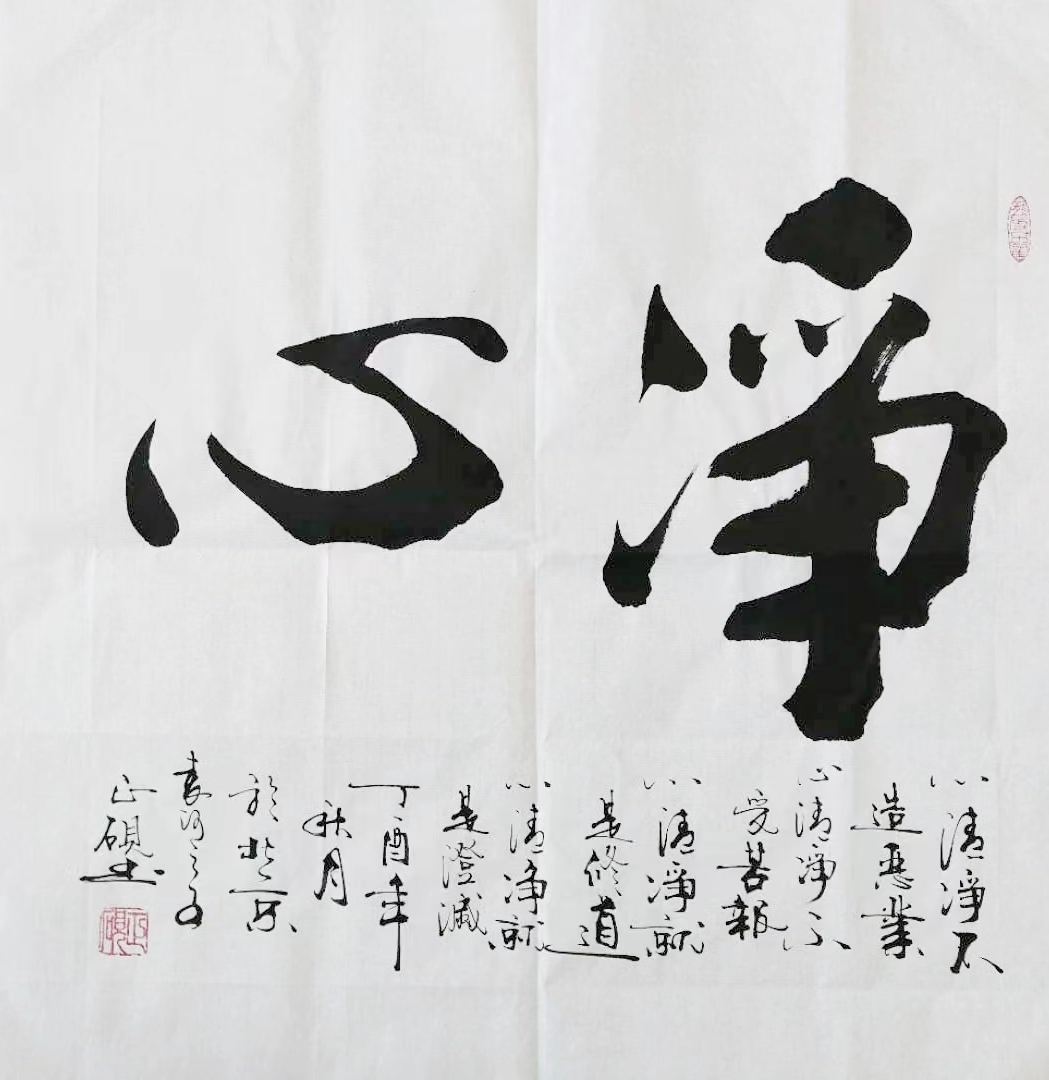 淨心
心清淨不
造惡業
心清淨不
受苦報
心清淨就
是修道
心清淨就
是證滅
丁酉年
秋月
於北京
正硯書
正硯